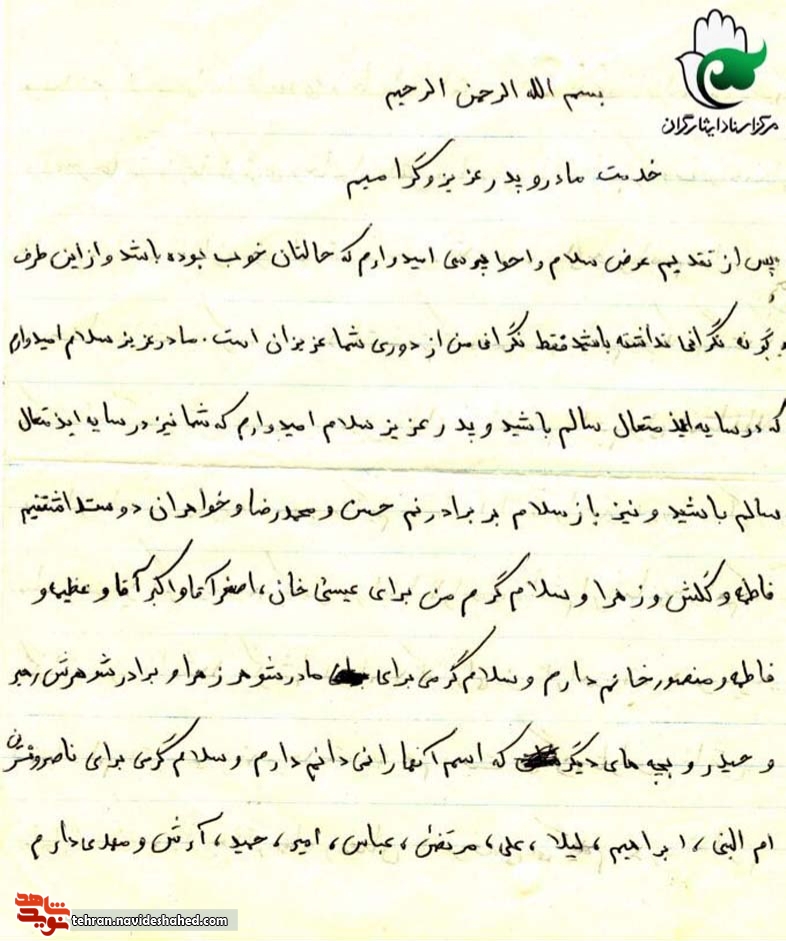 مرکز اسناد ایثارگران
بسم الله الرحمن الرحیم
خدمت مادر و پدر عزیز و گرامیم
پس از تقدیم عرض سلام و احوالپرسی امیدوارم که حالتان خوب بوده باشد و از این طرف
گونه نگرانی نداشته باشید فقط نگرانی من از دوری شما عزیزان است. مادر عزیز سلام امیدوارم
که در سایه ایزد متعال سالم باشید و پدر عزیز سلام امیدوارم که شما نیز در سایه ایزد متعال
سالم باشید و نیز باز سلام بر برادرنم حسن و محمدرضا و خواهران دوست داشتنیم
فاطمه و گلش و زهرا و سلام گرم من برای عیسی خان، اصغر آقا و اکبر آقا و عظیمه و
فاطمه و منصور خانم دارم و سلام گرمی برای مادر شوهر زهرا و برادر شوهرش رهبر
و حیدر و بچه های دیگر که اسم آنها را نمی دانم دارم و سلام گرمی برای ناصر و نسرین
ام البنی، ابراهیم، لیلا، علی، مرتضی، عباس، امیر، حمید، آرش و مهدی دارم
نوید شاهد
tehran.navideshahed.com